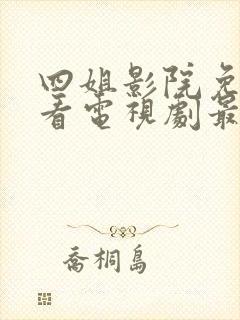 四姐影院免
看電視劇最
喬桐島